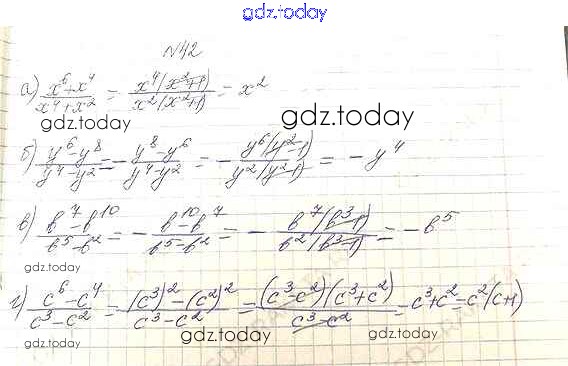 gdz.today
№42
а) x⁶+x⁴/x⁴+x² = x⁴(x²+1)/x²(x²+1) = x²
gdz.today gdz.today
б) y⁶-y⁸/y⁴-y² = - y⁸-y⁶/y⁴-y² = - y⁶(y²-1)/y²(y²-1) = - y⁴
в) b⁷-b¹⁰/b⁵-b² = - b¹⁰-b⁷/b⁵-b² = - b⁷(b³-1)/b²(b³-1) = - b⁵
gdz.today
г) c⁶-c⁴/c³-c² = (c³)²-(c²)²/c³-c² = (c³-c²)(c³+c²)/c³-c² = c³+c² = c²(c+1)
gdz.today gdz.today gdz.today